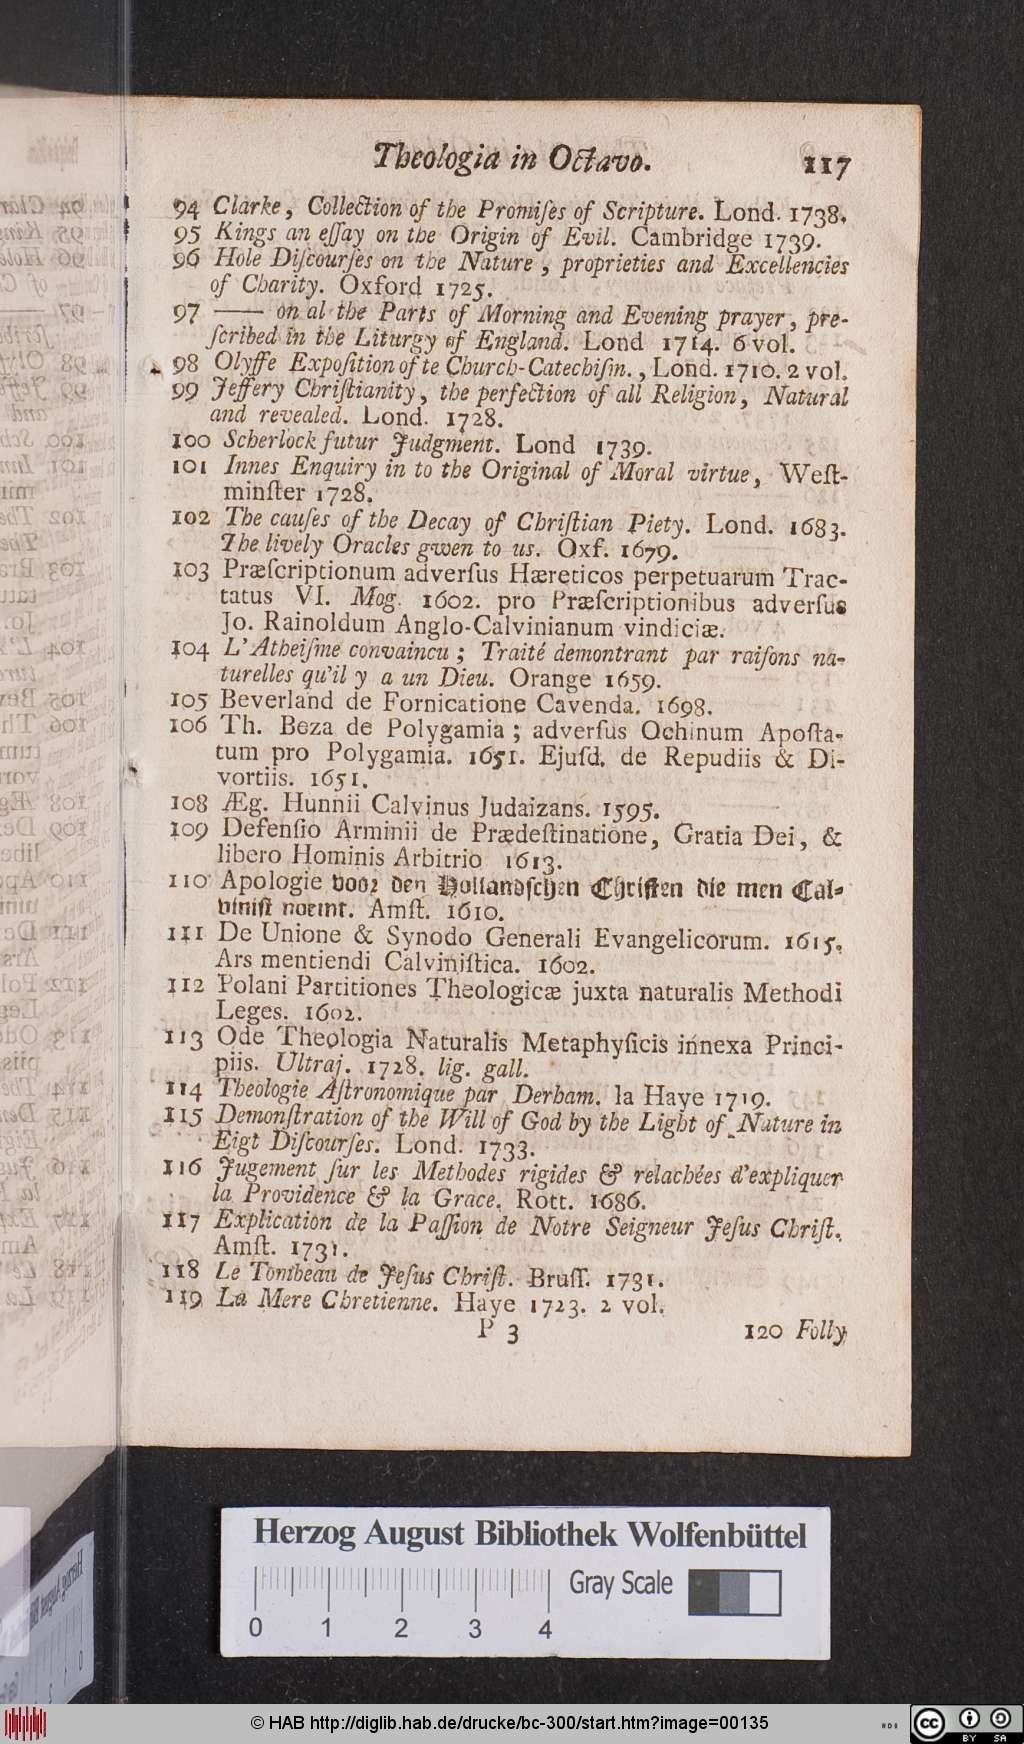 Theologia in Octavo. 117
94 Clarke, Collection of the Promiſes of Scripture. Lond. 1738.
95 Kings an eſſay on the Origin of Evil. Cambridge 1739.
96 Hole Diſcourſes on the Nature, proprieties and Excellencies
of Charity. Oxford 1725.
97 —— on al the Parts of Morning and Evening prayer, pre-
ſcribed in the Liturgy of England. Lond 1714. 6 vol.
98 Olyffe Expoſition of te Church-Catechiſm., Lond. 1710. 2 vol.
99 Jeffery Chriſtianity, the perfection of all Religion, Natural
and revealed. Lond. 1728.
100 Scherlock futur Judgment. Lond 1739.
101 Innes Enquiry in to the Original of Moral virtue, Weſt-
minſter 1728.
102 The cauſes of the Decay of Chriſtian Piety. Lond. 1683.
The lively Oracles gwen to us. Oxf. 1679.
103 Præſcriptionum adverſus Hæreticos perpetuarum Trac-
tatus VI. Mog. 1602. pro Præſcriptionibus adverſus
Jo. Rainoldum Anglo-Calvinianum vindiciæ.
104 L'Atheiſme convaincu; Traité demontrant par raiſons na-
turelles qu'il y a un Dieu. Orange 1659.
105 Beverland de Fornicatione Cavenda. 1698.
106 Th. Beza de Polygamia; adverſus Ochinum Apoſta-
tum pro Polygamia. 1651. Ejuſd. de Repudiis & Di-
vortiis. 1651.
108 Æg. Hunnii Calvinus Judaizans. 1595.
109 Defenſio Arminii de Prædeſtinatione, Gratia Dei, &
libero Hominis Arbitrio 1613.
110 Apologie voor den Hollandſchen Chriſten die men Cal-
viniſt noemt. Amſt. 1610.
111 De Unione & Synodo Generali Evangelicorum. 1615.
Ars mentiendi Calviniſtica. 1602.
112 Polani Partitiones Theologicæ juxta naturalis Methodi
Leges. 1602.
113 Ode Theologia Naturalis Metaphyſicis innexa Princi-
piis. Ultraj. 1728. lig. gall.
114 Theologie Aſtronomique par Derham. la Haye 1719.
115 Demonſtration of the Will of God by the Light of Nature in
Eigt Diſcourſes. Lond. 1733.
116 Jugement ſur les Methodes rigides & relachées d'expliquer
la Providence & la Grace. Rott. 1686.
117 Explication de la Paſſion de Notre Seigneur Jeſus Chriſt.
Amſt. 1731.
118 Le Tombeau de Jeſus Chriſt. Bruſſ. 1731.
119 La Mere Chretienne. Haye 1723. 2 vol.
P 3 120 Folly
Herzog August Bibliothek Wolfenbüttel
Gray Scale
0 1 2 3 4
© HAB http://diglib.hab.de/drucke/bc-300/start.htm?image=00135
cc BY SA